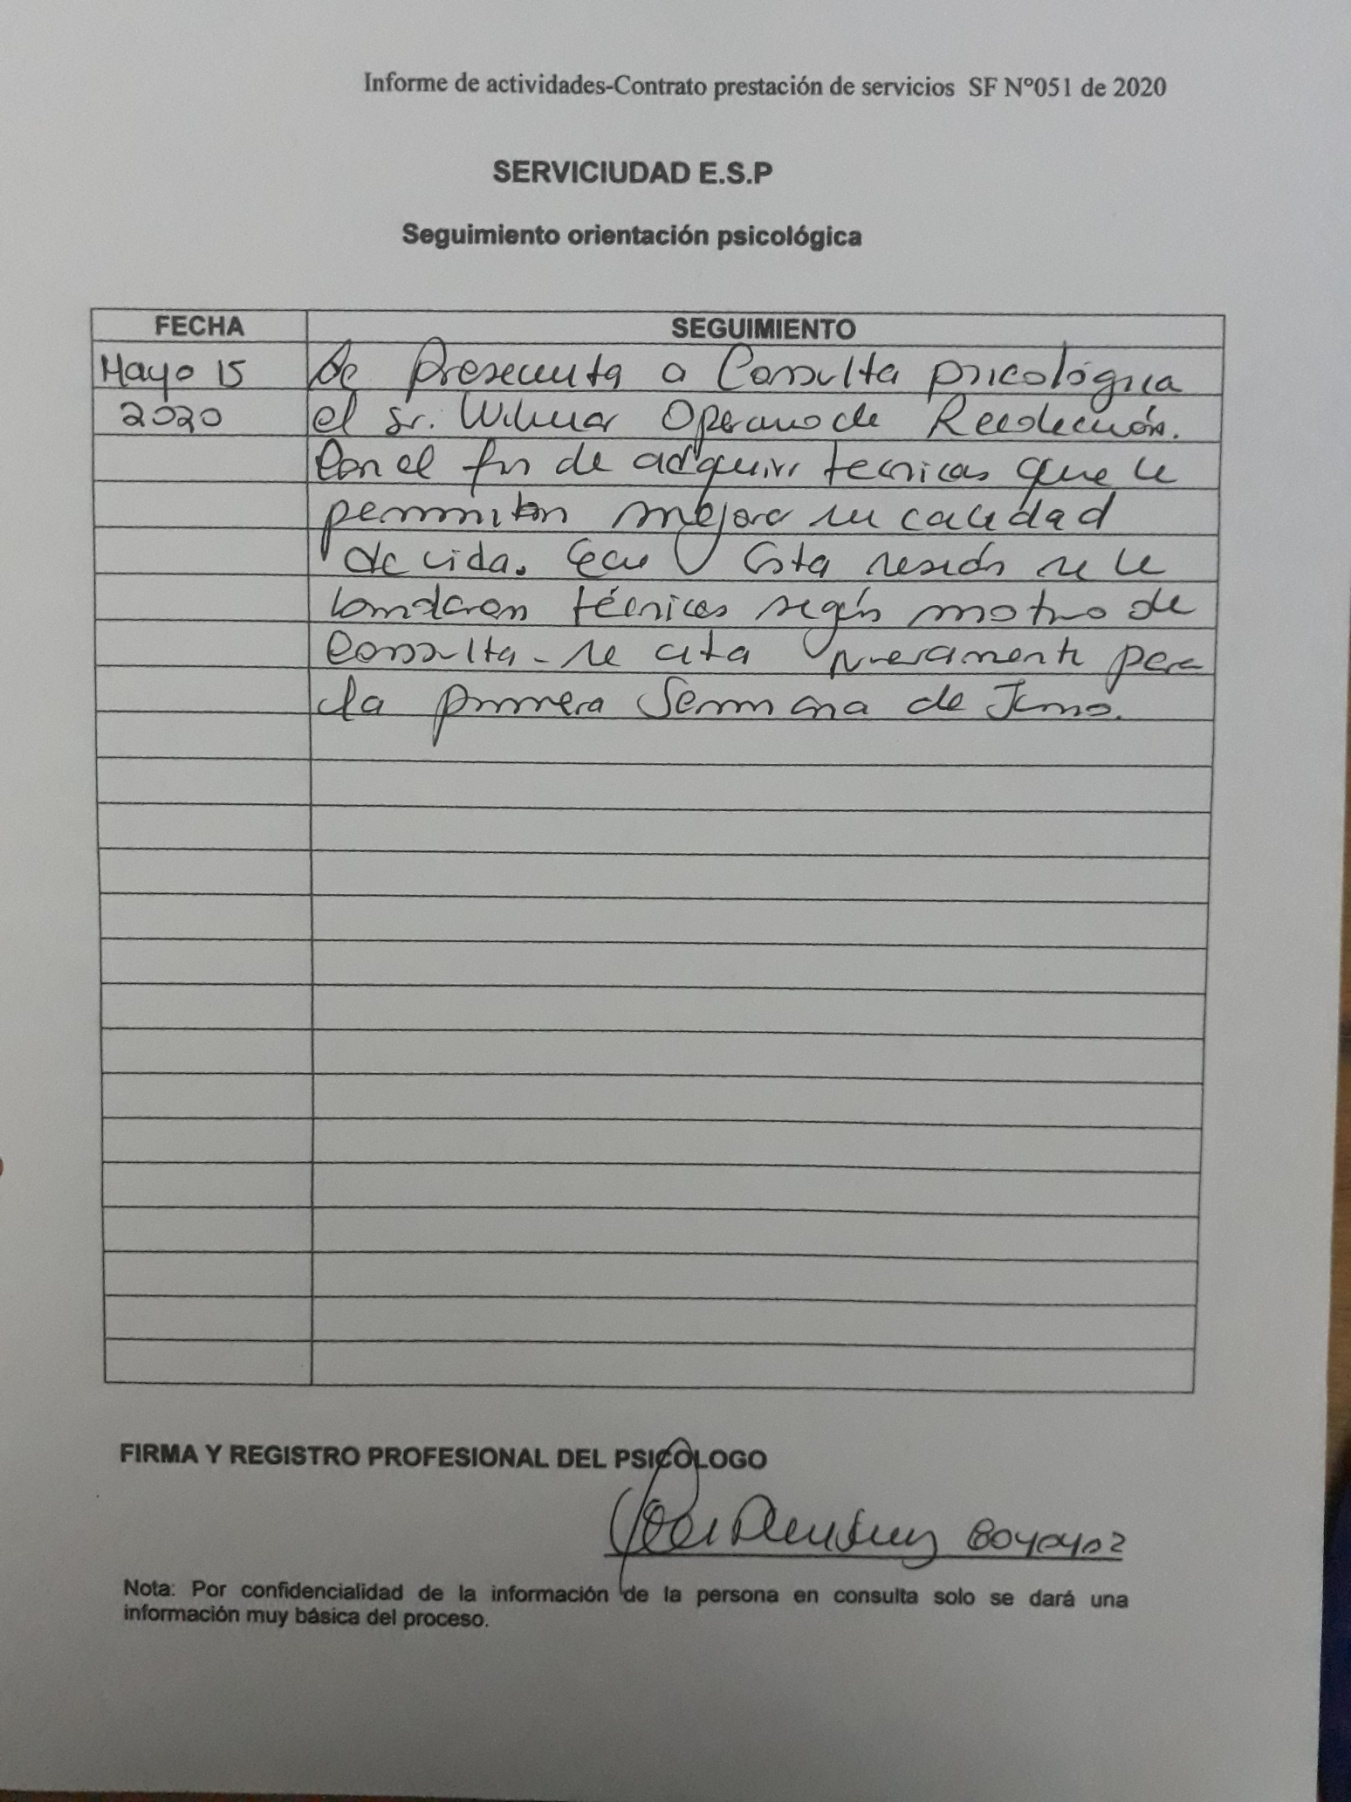 Informe de actividades-Contrato prestación de servicios SF N°051 de 2020
SERVICIUDAD E.S.P
Seguimiento orientación psicológica
FECHA SEGUIMIENTO
Mayo 15 Se Presenta a Consulta psicológica
2020 el Sr. Wilmar Operario de Recolección.
Con el fin de adquirir tecnicas que le
permitan mejorar su calidad
de vida. En Esta sesión se le
brindaron técnicas según motivo de
Consulta - se cita nuevamente para
la primera Semana de Junio.
FIRMA Y REGISTRO PROFESIONAL DEL PSICÓLOGO
Nota: Por confidencialidad de la información de la persona en consulta solo se dará una
información muy básica del proceso.